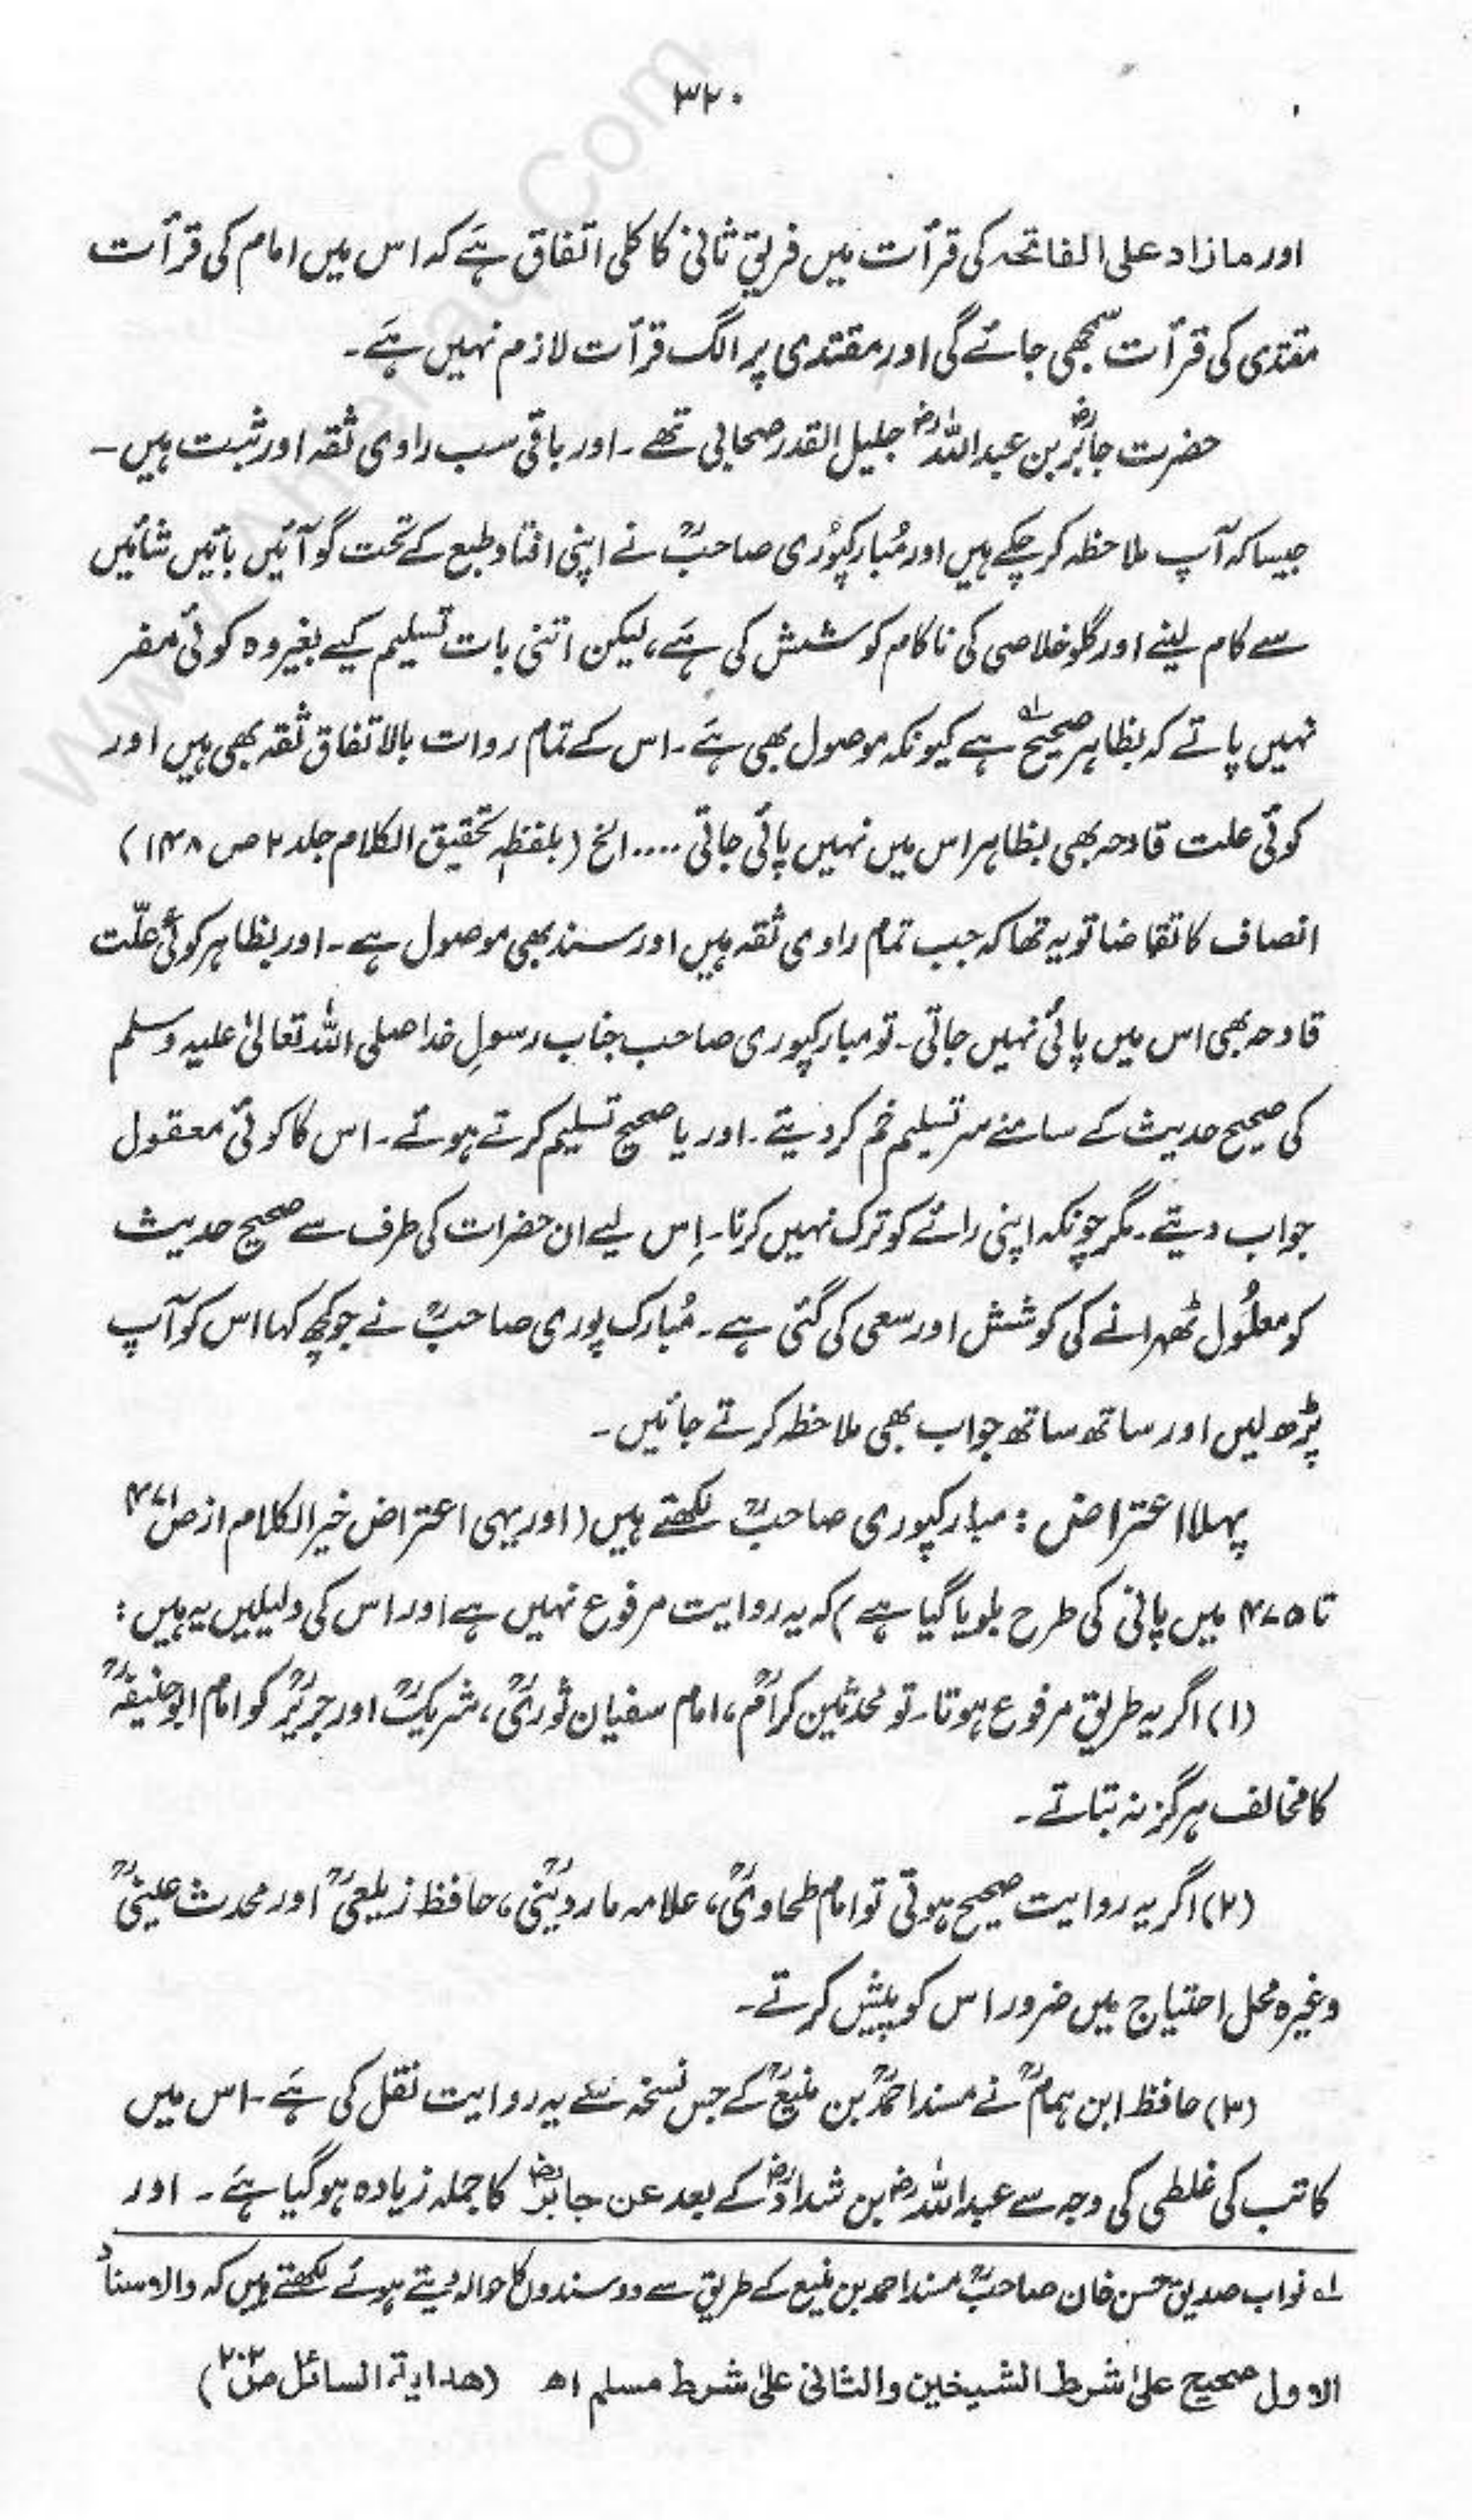 ۳۲۰
اور مازاد علی الفاتحہ کی قرأت میں فریقِ ثانی کا کلی اتفاق ہے کہ اس میں امام کی قرأت
مقتدی کی قرأت سمجھی جائے گی اور مقتدی پر الگ قرأت لازم نہیں ہے۔
حضرت جابرؓ بن عبداللہؓ جلیل القدر صحابی تھے۔ اور باقی سب راوی ثقہ اور ثبت ہیں۔
جیسا کہ آپ ملاحظہ کر چکے ہیں اور مُبارکپوُری صاحبؒ نے اپنی افتاد طبع کے تحت گو آئیں بائیں شائیں
سے کام لینے اور گلو خلاصی کی ناکام کوشش کی ہے، لیکن اتنی بات تسلیم کیے بغیر وہ کوئی مفر
نہیں پاتے کہ بظاہر صحیح لہ ہے کیونکہ موصول بھی ہے۔ اس کے تمام روات بالاتفاق ثقہ بھی ہیں اور
کوئی علت قادحہ بھی بظاہر اس میں نہیں پائی جاتی .... الخ (بلفظہٖ تحقیق الکلام جلد ۲ ص ۱۴۸)
انصاف کا تقاضا تو یہ تھا کہ جب تمام راوی ثقہ ہیں اور سند بھی موصول ہے۔ اور بظاہر کوئی علّت
قادحہ بھی اس میں پائی نہیں جاتی۔ تو مبارکپوری صاحب جناب رسولِ خدا صلی اللہ تعالیٰ علیہ وسلم
کی صحیح حدیث کے سامنے سر تسلیم خم کر دیتے۔ اور یا صحیح تسلیم کرتے ہوئے۔ اس کا کوئی معقول
جواب دیتے۔ مگر چونکہ اپنی رائے کو ترک نہیں کرنا۔ اِس لیے ان حضرات کی طرف سے صحیح حدیث
کو معلُول ٹھہرانے کی کوشش اور سعی کی گئی ہے۔ مُبارک پوری صاحبؒ نے جو کچھ کہا اس کو آپ
پڑھ لیں اور ساتھ ساتھ جواب بھی ملاحظہ کرتے جائیں۔
پہلا اعتراض : مبارکپوری صاحبؒ لکھتے ہیں (اور یہی اعتراض خیر الکلام از ص ۴۷۱
تا ۴۷۵ میں پانی کی طرح بلویا گیا ہے) کہ یہ روایت مرفوع نہیں ہے اور اس کی دلیلیں یہ ہیں :
(۱) اگر یہ طریق مرفوع ہوتا۔ تو محدثین کرامؒ، امام سفیان ثوریؒ، شریکؒ اور جریرؒ کو امام ابوحنیفہؒ
کا مخالف ہرگز نہ بتاتے۔
(۲) اگر یہ روایت صحیح ہوتی تو امام طحاویؒ، علامہ ماردینیؒ، حافظ زیلعیؒ اور محدث عینیؒ
وغیرہ محل احتیاج میں ضرور اس کو پیش کرتے۔
(۳) حافظ ابن ہمامؒ نے مسند احمدؒ بن منیعؒ کے جس نسخہ سے یہ روایت نقل کی ہے۔ اس میں
کاتب کی غلطی کی وجہ سے عبداللہؓ بن شدادؓ کے بعد عن جابرؓ کا جملہ زیادہ ہو گیا ہے۔ اور
لہ نواب صدیق حسن خان صاحبؒ مسند احمد بن منیع کے طریق سے دو سندوں کا حوالہ دیتے ہوئے لکھتے ہیں کہ والاسناد
الاول صحیح علیٰ شرط الشیخین والثانی علیٰ شرط مسلم اھ (ھدایۃ السائل ص ۲۰۲)
www. Com